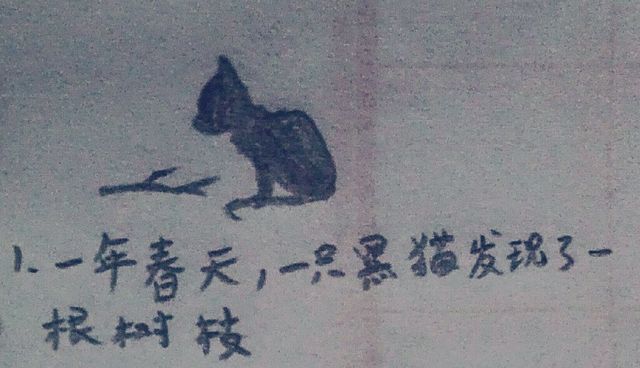 1.一年春天,一只黑猫发现了一
根树枝